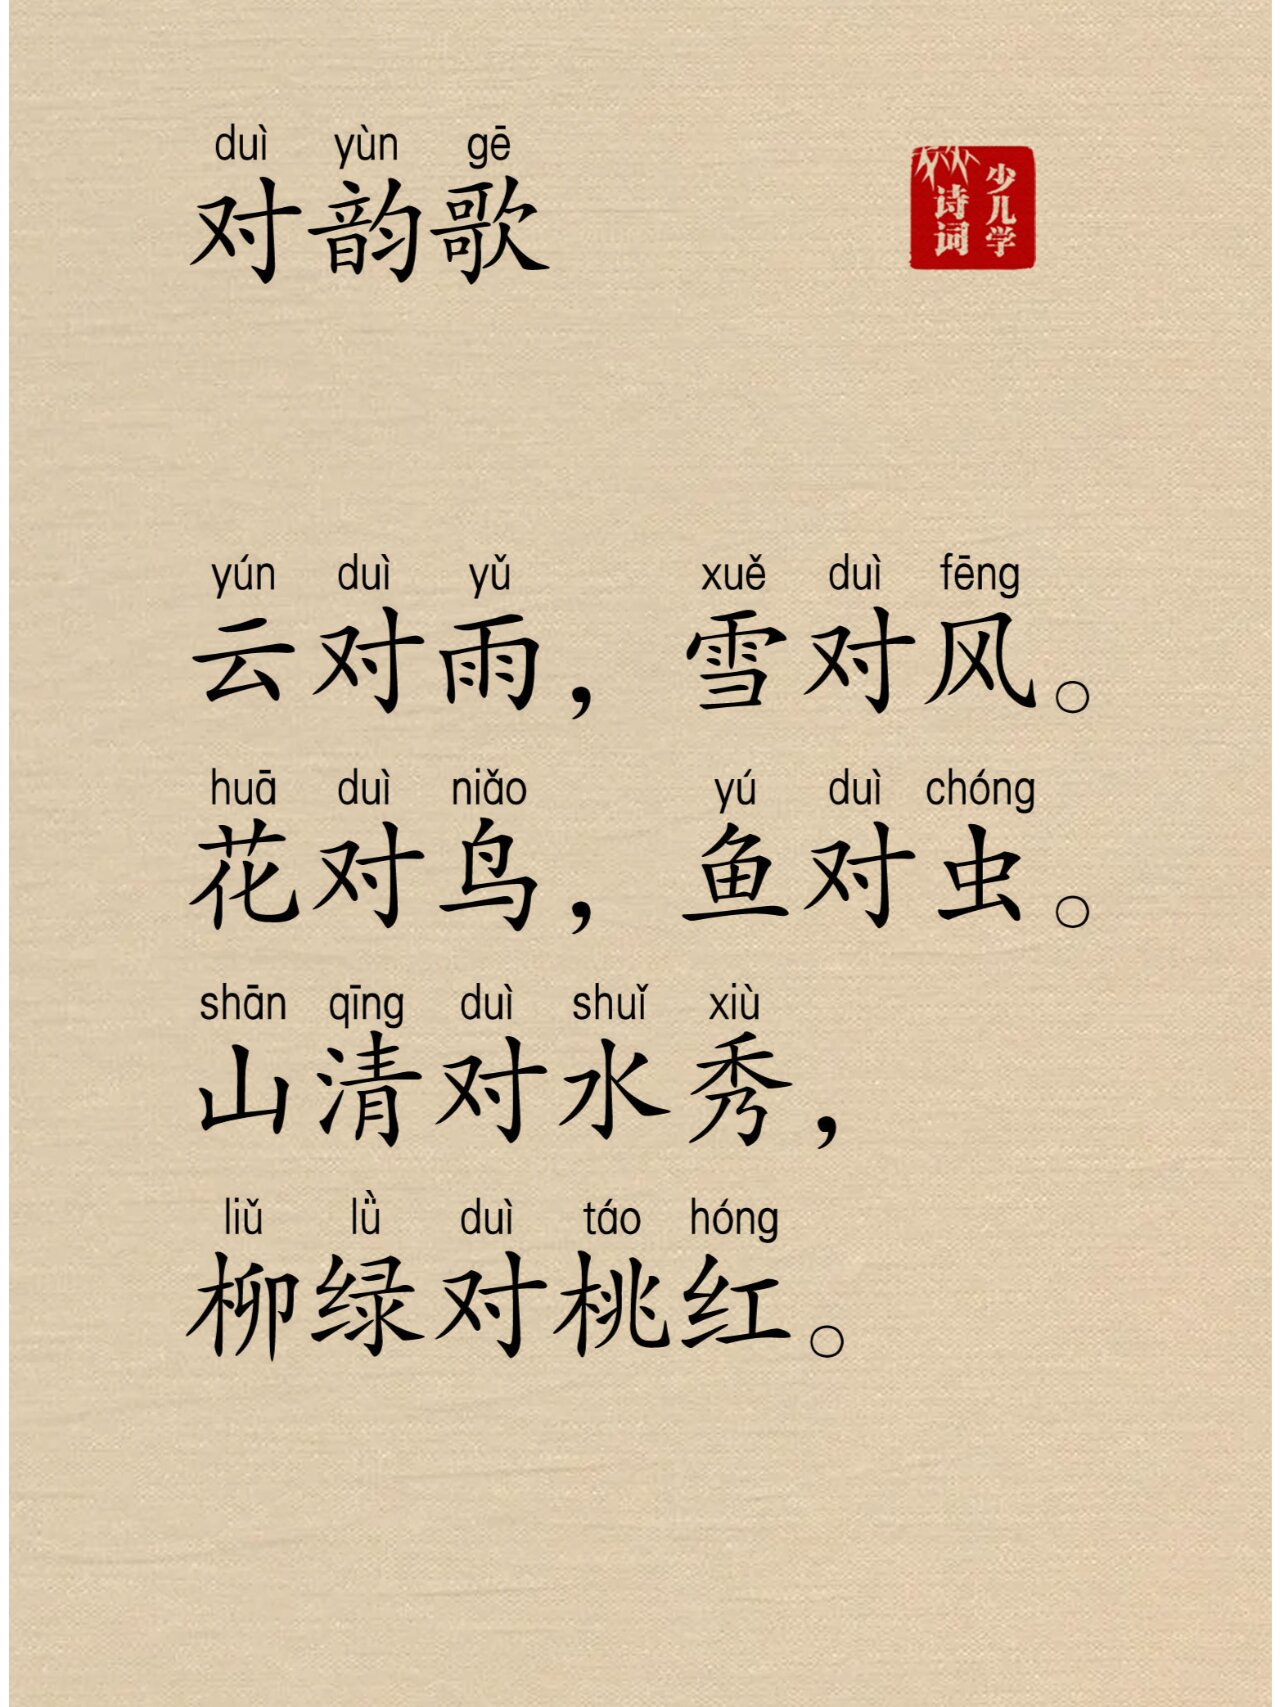 duì yùn gē
对韵歌
少儿学
诗词
yún duì yǔ xuě duì fēng
云对雨，雪对风。
huā duì niǎo yú duì chóng
花对鸟，鱼对虫。
shān qīng duì shuǐ xiù
山清对水秀，
liǔ lǜ duì táo hóng
柳绿对桃红。